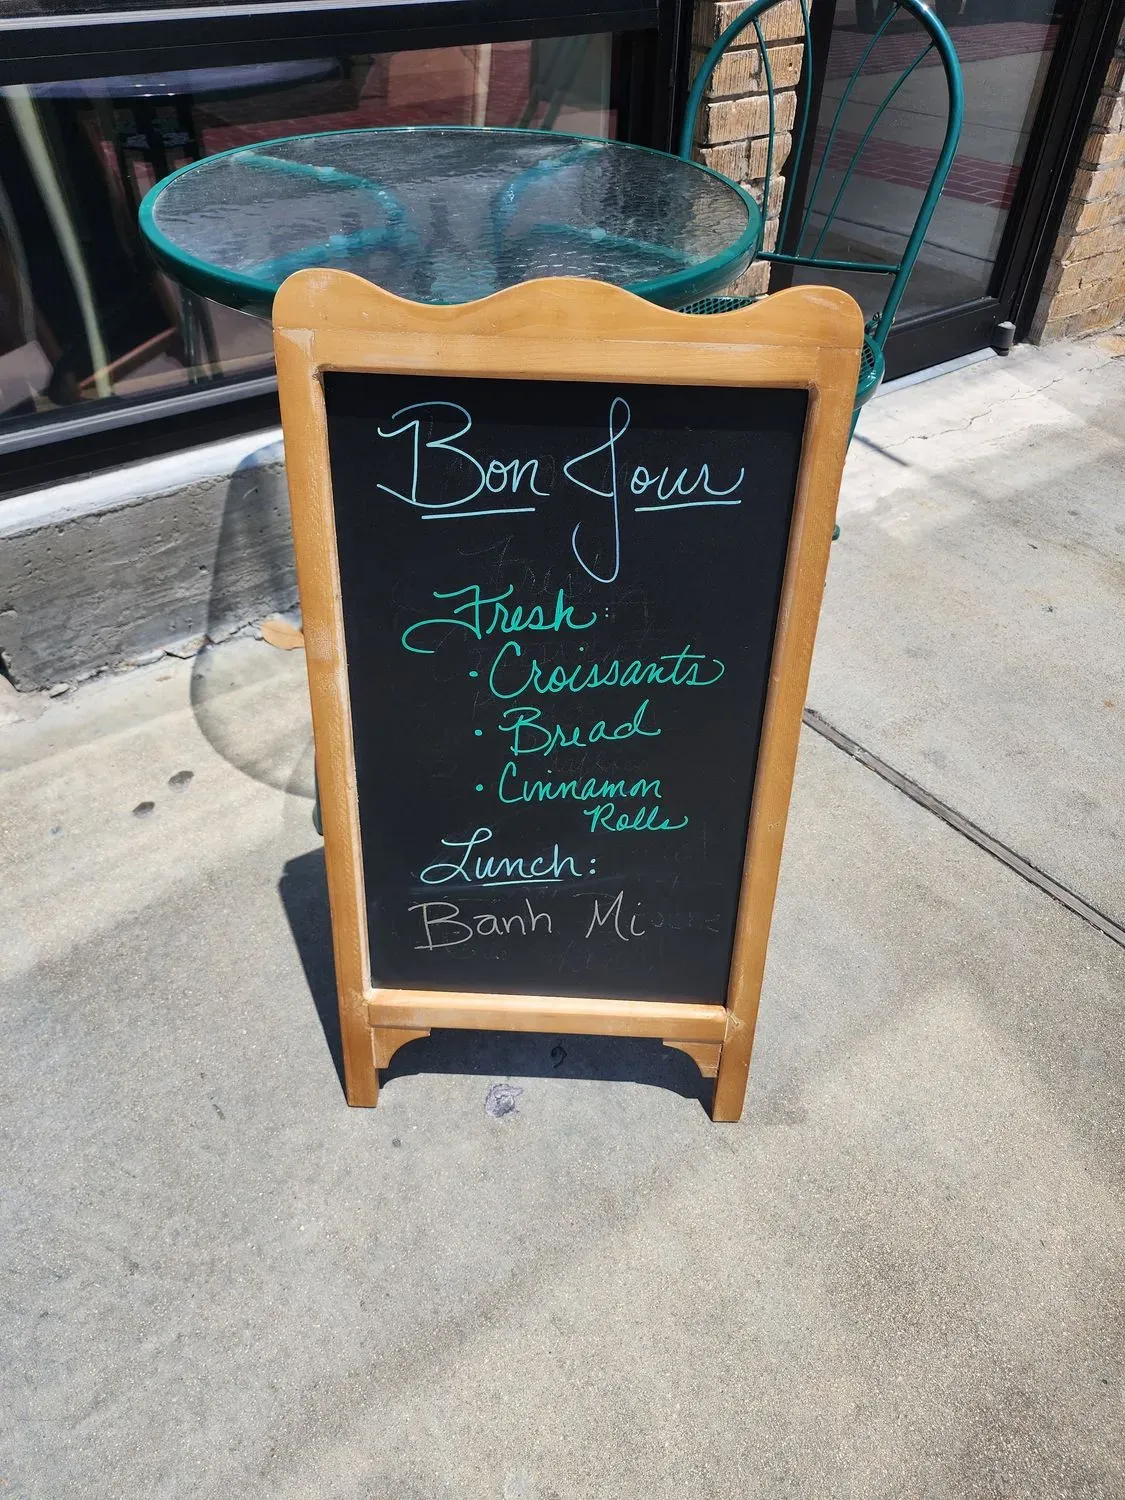 Bon Jour
Fresh:
• Croissants
• Bread
• Cinnamon
Rolls
Lunch:
Banh Mi